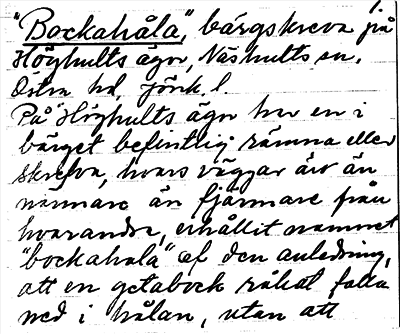 "Bockahåla", bärgskreva på
Höghults ägor, Näshults sn,
Östra hd, Jönk. l.
På Höghults ägor har en i
bärget befintlig rämna eller
skrefva, hvars väggar äro än
närmare än fjärmare från
hvarandra, erhållit namnet
"bockahåla" af den anledning,
att en getabock råkat falla
ned i hålan, utan att